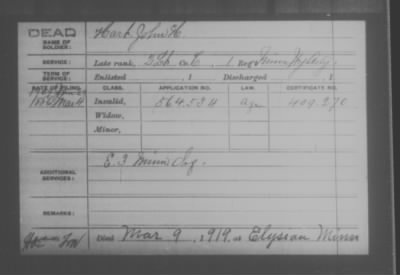 DEAD
NAME OF SOLDIER:
Hart John H.
SERVICE:
Late rank, Co. E, 1 Reg
TERM OF SERVICE:
Enlisted , 1 Discharged , 1
DATE OF FILING. CLASS. APPLICATION NO. LAW. CERTIFICATE NO.
Invalid, 564534 409.270
Widow,
Minor,
ADDITIONAL SERVICES:
E. 3 Minn Inf.
REMARKS:
Died Mar 9, 1919, at Elysian Minn